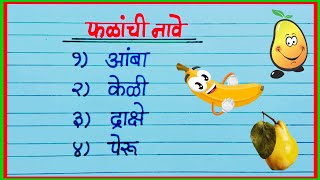 फळांची नावे
१) आंबा
२) केळी
३) द्राक्षे
४) पेरू